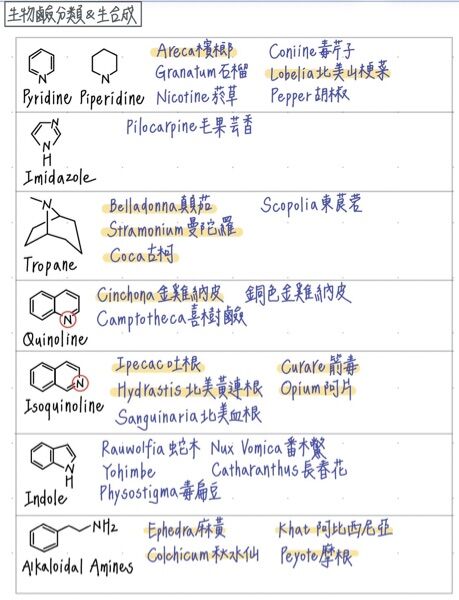 生物鹼分類&生合成
Pyridine Piperidine
Areca檳榔 Coniine毒芹子
Granatum石榴 Lobelia北美山梗菜
Nicotine菸草 Pepper胡椒
N
N
H
Imidazole
Pilocarpine毛果芸香
N
Tropane
Belladonna顛茄 Scopolia東莨菪
Stramonium曼陀羅
Coca古柯
N
Quinoline
Cinchona金雞納皮 銅色金雞納皮
Camptotheca喜樹鹼
N
Isoquinoline
Ipecac吐根 Curare箭毒
Hydrastis北美黃連根 Opium阿片
Sanguinaria北美血根
N
H
Indole
Rauwolfia蛇木 Nux Vomica番木鱉
Yohimbe Catharanthus長春花
Physostigma毒扁豆
NH2
Alkaloidal Amines
Ephedra麻黃 Khat阿比西尼亞
Colchicum秋水仙 Peyote摩根